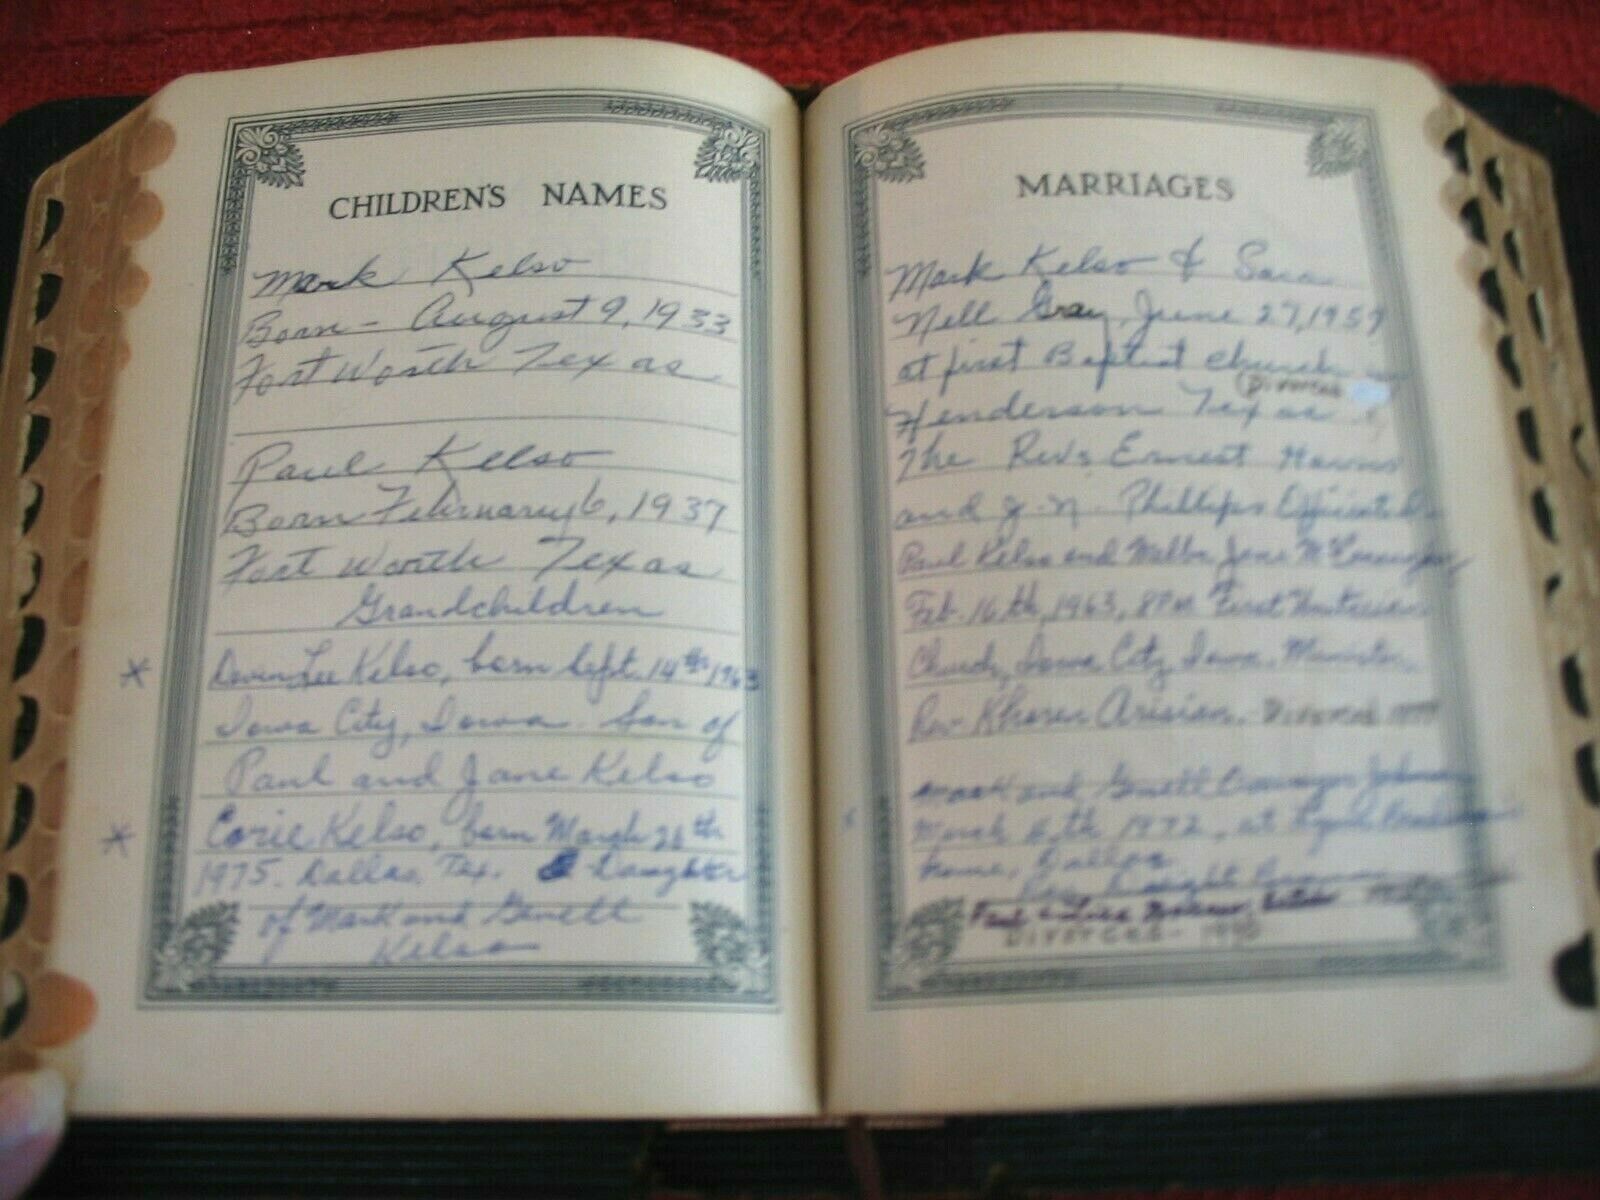 CHILDREN'S NAMES
Mark Kelso
Born - August 9, 1933
Fort Worth Texas
Paul Kelso
Born February 6, 1937
Fort Worth Texas
Grandchildren
* Devin Lee Kelso, born Sept. 14th 1963
Iowa City, Iowa. Son of
Paul and Jane Kelso
* Corie Kelso, born March 26th
1975. Dallas, Tex. Daughter
of Mark and Genett
Kelso
MARRIAGES
Mark Kelso & Sara
Nell Gray, June 27, 1959
at first Baptist church in
(Divorced
Henderson Texas
The Revs Ernest
and J. N. Phillips Officiated
Paul Kelso and Jane
Feb. 16th, 1963, 8 PM First Unitarian
Church, Iowa City, Iowa. Minister,
Rev. Khoren Arisian. Divorced
Mark and Genett Johnson
March 6th 1972, at
home, Dallas
Rev. Dwight
Paul &
Divorced - 1990